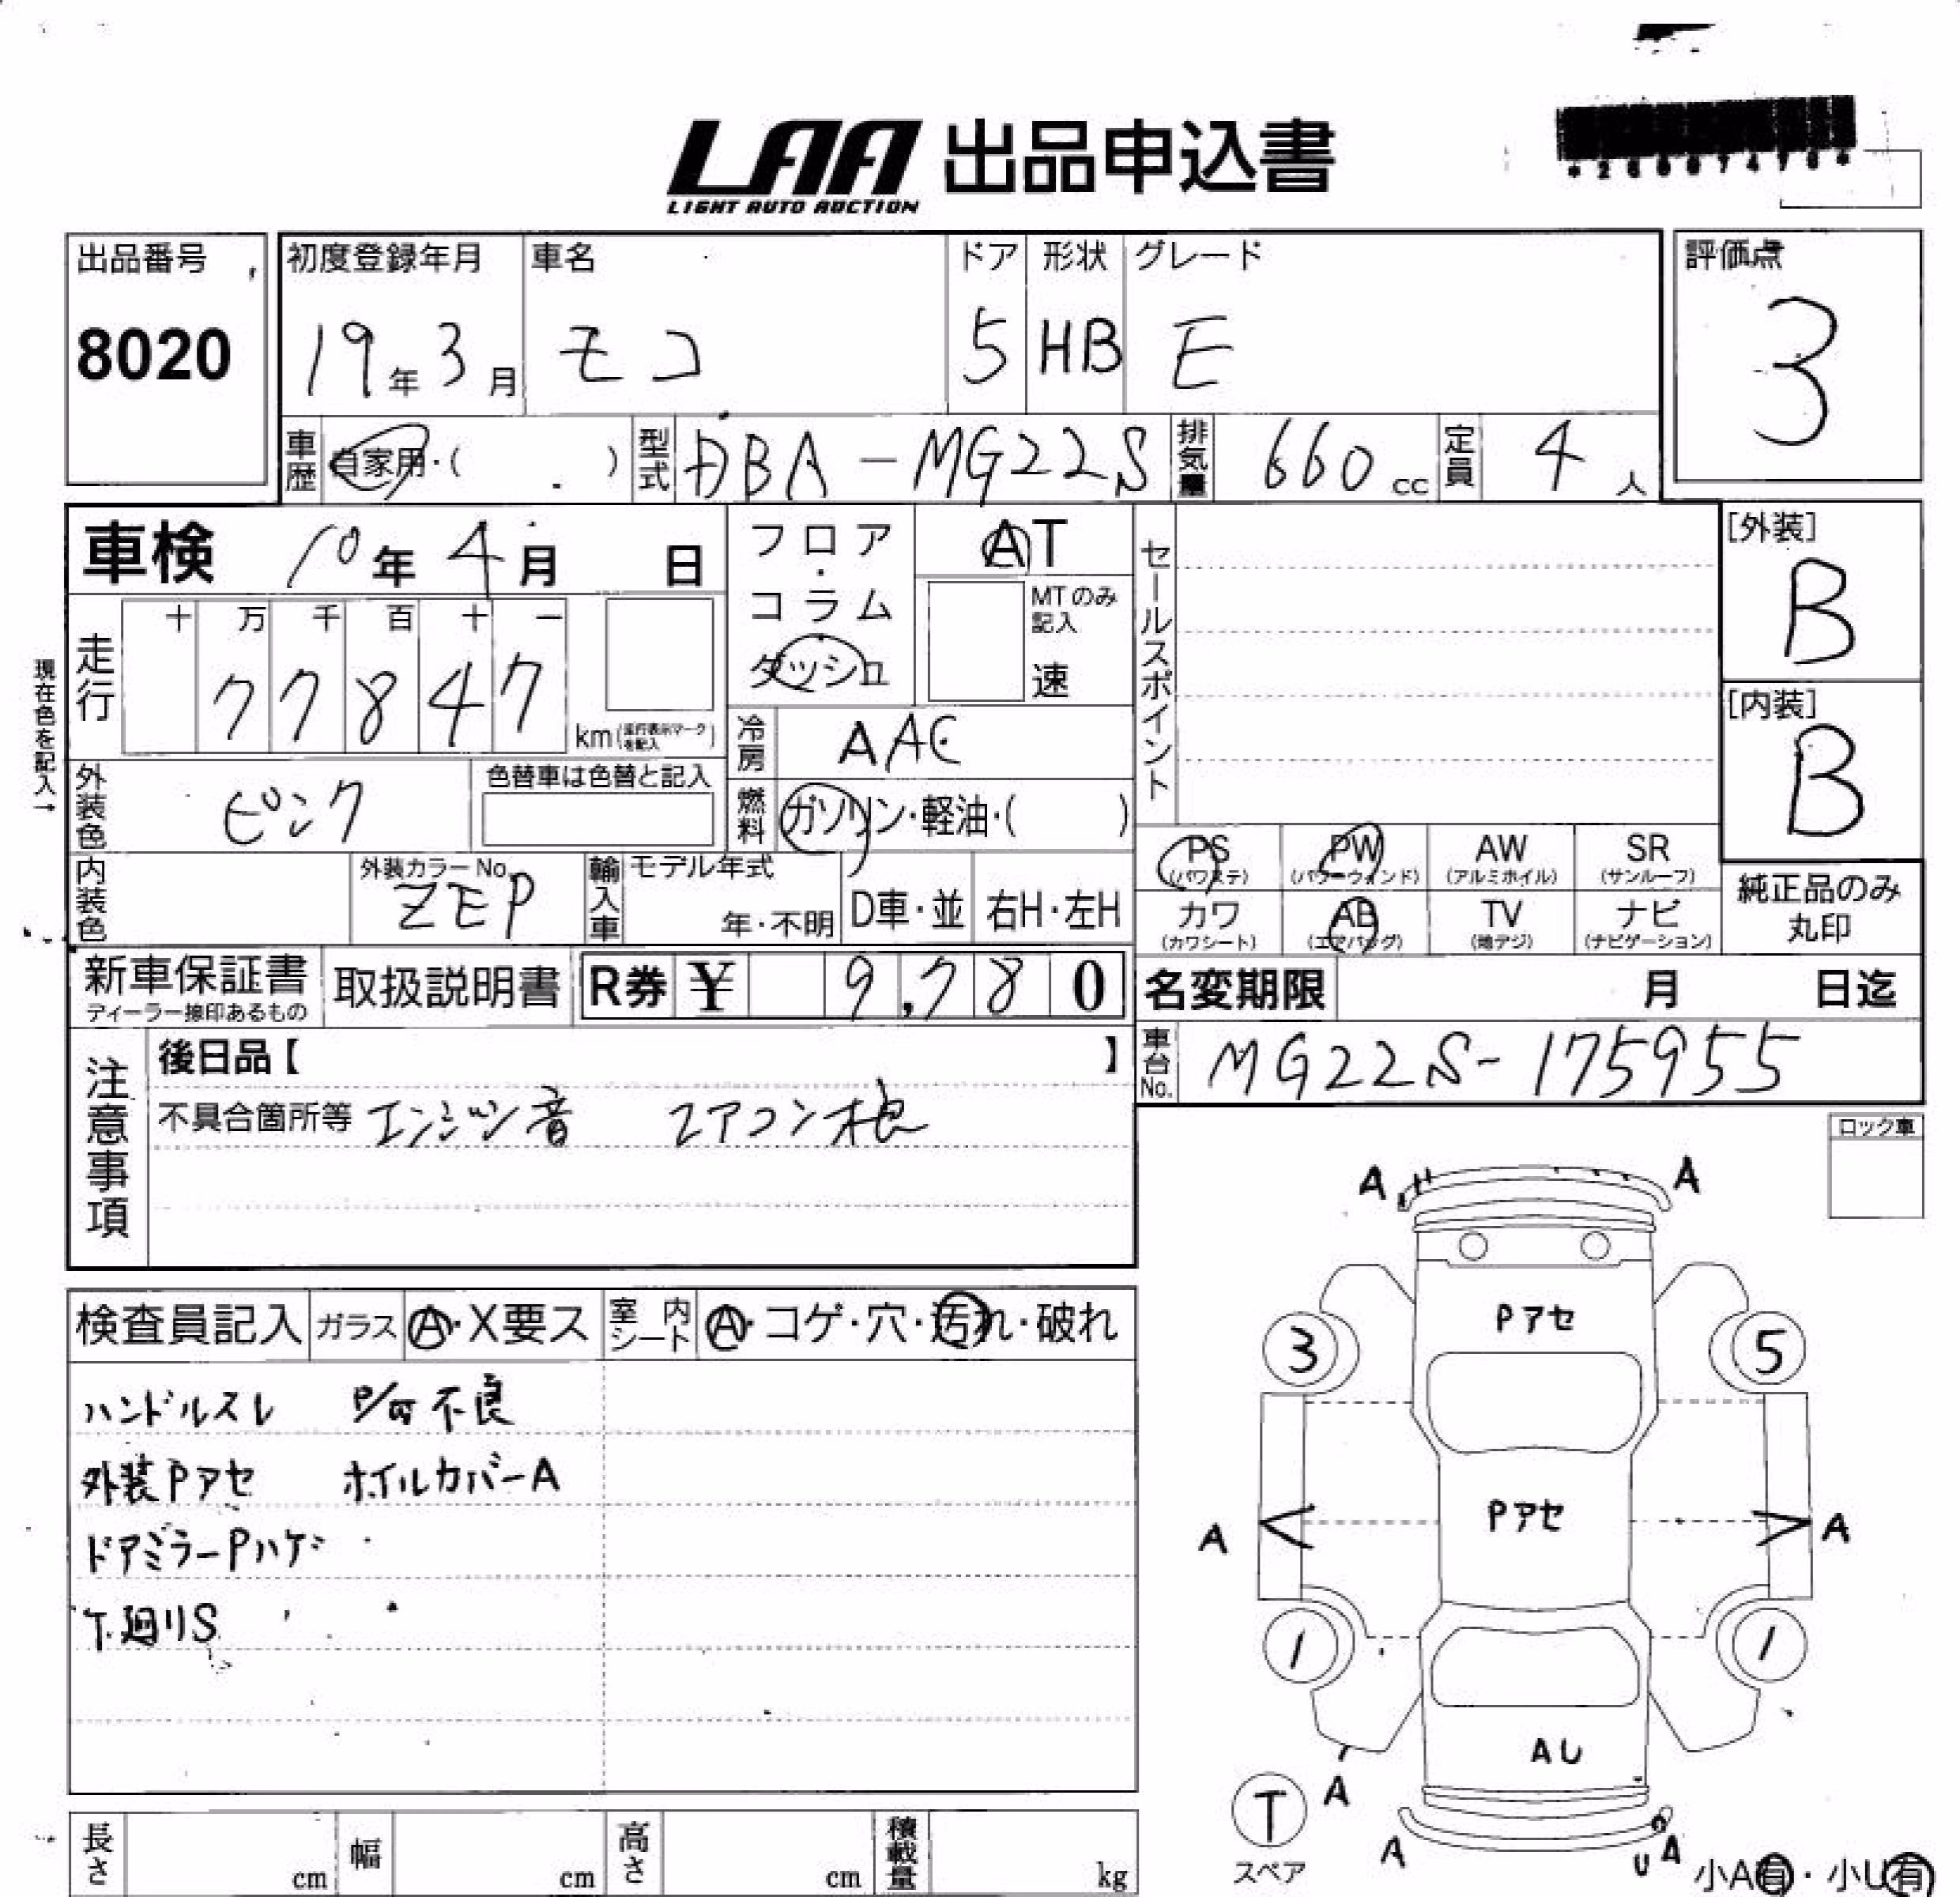 LAA 出品申込書
LIGHT AUTO AUCTION
出品番号
8020
初度登録年月 車名 ドア 形状 グレード
19年3月 モコ 5 HB E
評価点
3
車歴 自家用・( ) 型式 DBA-MG22S 排気量 660cc 定員 4人
車検 10年4月 日
フロア・コラム
ダッシュ
AT
MTのみ記入
速
セールスポイント
[外装]
B
[内装]
B
現在色を記入→
走行 十 万 千 百 十 一
77847 km(走行表示マークを記入)
冷房 AAC
外装色 ピンク 色替車は色替と記入
燃料 ガソリン・軽油・( )
内装色 外装カラーNo. ZEP
輸入車 モデル年式 年・不明 D車・並 右H・左H
PS (パワステ) PW (パワーウィンド) AW (アルミホイル) SR (サンルーフ)
カワ (カワシート) AB (エアバッグ) TV (地デジ) ナビ (ナビゲーション)
純正品のみ丸印
新車保証書 ディーラー捺印あるもの 取扱説明書 R券 ¥ 9,780
名変期限 月 日迄
車台No. MG22S-175955
注意事項
後日品【 】
不具合箇所等 エンジン音 エアコン
ロック車
検査員記入 ガラス A・X要ス 室内シート A・コゲ・穴・汚れ・破れ
ハンドルスレ 不良
外装Pアセ ホイルカバーA
ドアミラーPハゲ
下廻りS
A A
Pアセ
3 5
Pアセ
A A
1 1
AU
A
T
スペア
A U A
小A有・小U有
長さ cm 幅 cm 高さ cm 積載量 kg